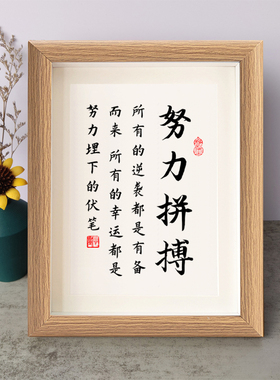 努力拼搏
所有的逆袭都是有备
而来 所有的幸运都是
努力埋下的伏笔